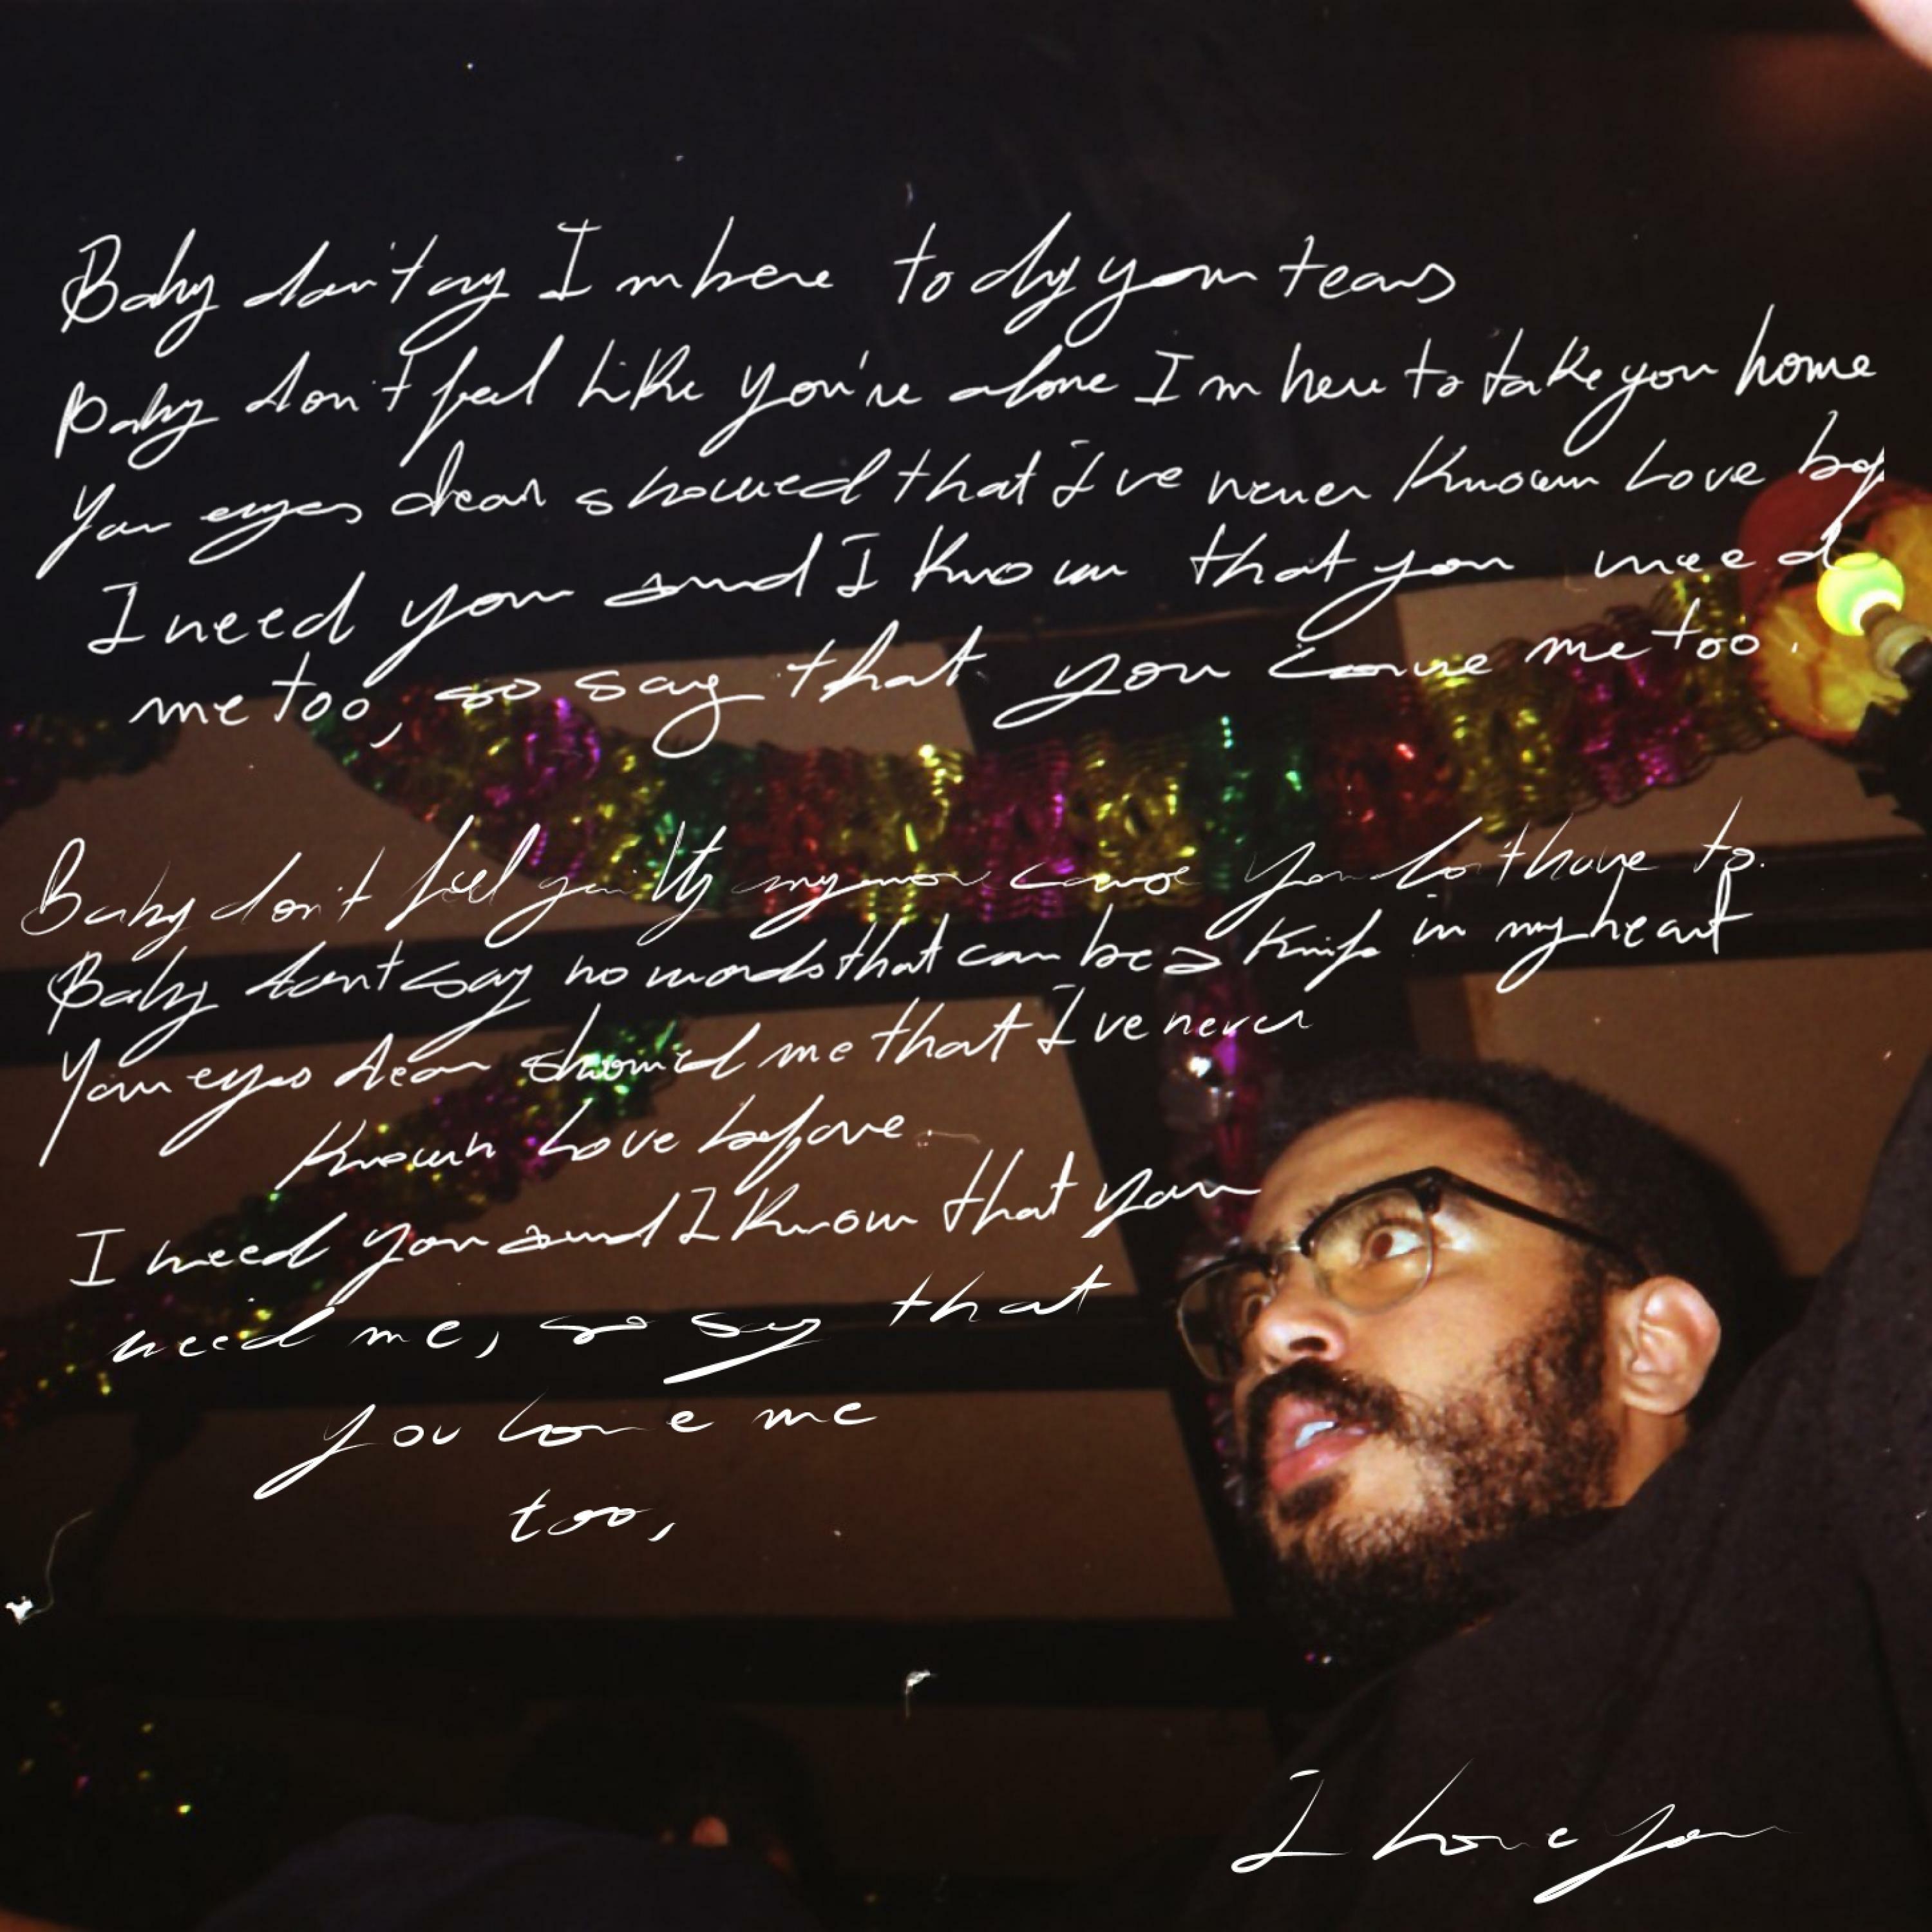 Baby don't cry I'm here to dry your tears
Baby don't feel like you're alone I'm here to take you home
Your eyes dear showed that I've never known love bef
I need you and I know that you need
me too, so say that you love me too.
Baby don't feel guilty anymore cause you don't have to.
Baby don't say no words that can be a knife in my heart
Your eyes dear showed me that I've never
known love before.
I need you and I know that you
need me, so say that
you love me
too,
I love you